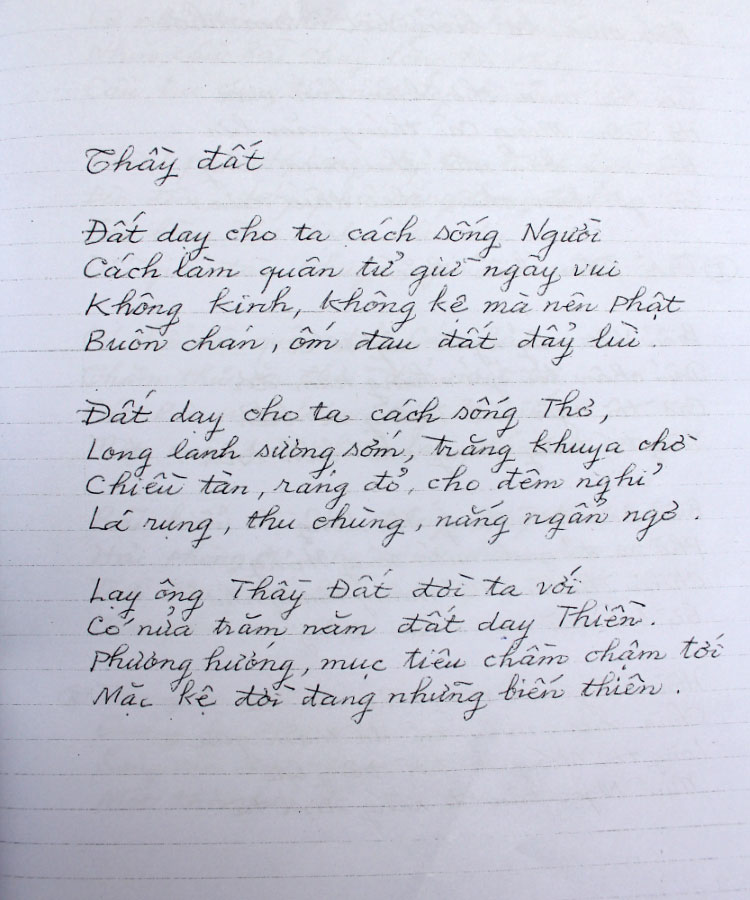 Thầy đất
Đất dạy cho ta cách sống Người
Cách làm quân tử giữ ngày vui
Không kinh, không kệ mà nên Phật
Buồn chán, ốm đau đất đẩy lùi.
Đất dạy cho ta cách sống Thơ,
Long lanh sương sớm, trăng khuya chờ
Chiều tàn, ráng đỏ, cho đêm nghỉ
Lá rụng, thu chùng, nắng ngẩn ngơ.
Lạy ông Thầy Đất đời ta với
Có nửa trăm năm đất dạy Thiền.
Phương hướng, mục tiêu chầm chậm tới
Mặc kệ đời đang những biến thiên.